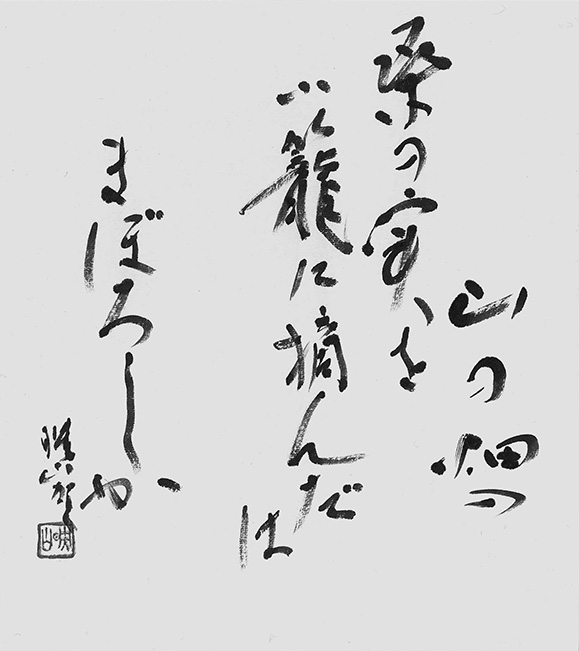 山の畑の
桑の実を
小籠に摘んだ
は
まぼろしか